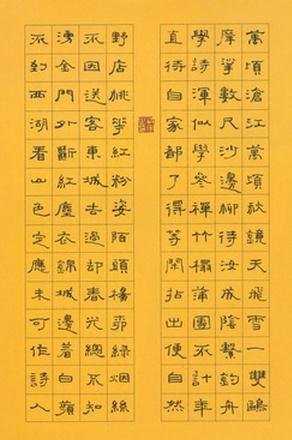 萬頃滄江萬頃秋鏡天飛雪一雙鷗
摩挲數尺沙邊柳待汝成陰繫釣舟
學詩渾似學參禪竹榻蒲團不計年
直待自家都了得等閑拈出便自然
野店桃華紅粉姿陌頭楊柳綠烟絲
不因送客東城去過却春光總不知
湧金門外斷紅塵衣錦城邊著白蘋
不到西湖看山色定應未可作詩人